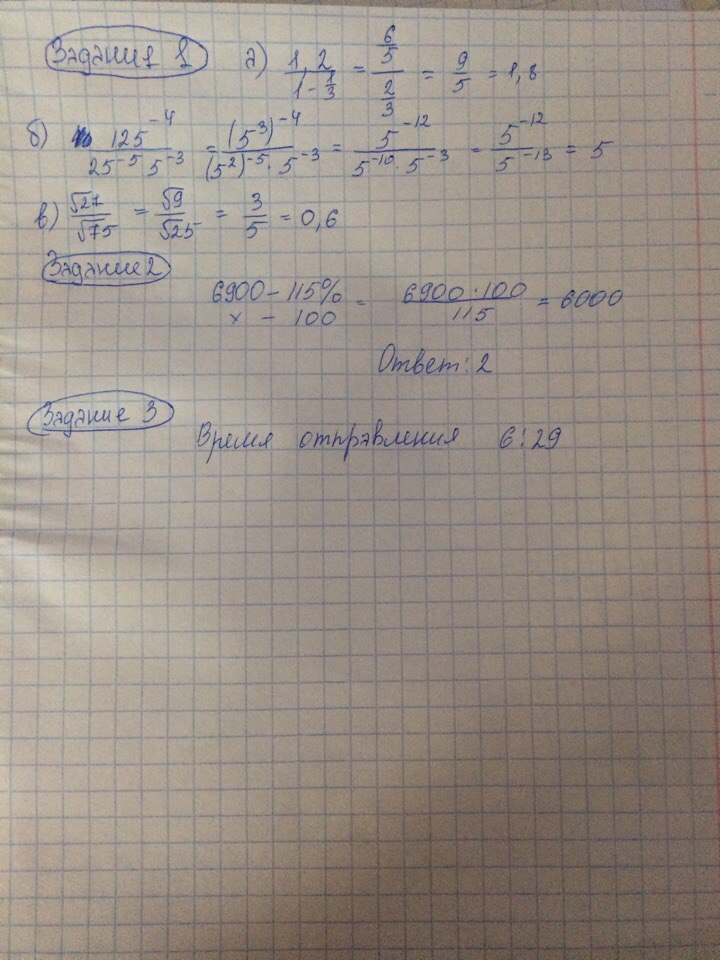 Задания 1 а) 1,2/(1-1/3) = (6/5)/(2/3) = 9/5 = 1,8
б) 125^-4/(25^-5 5^-3) = (5^3)^-4/((5^2)^-5 · 5^-3) = 5^-12/(5^-10 · 5^-3) = 5^-12/5^-13 = 5
в) √27/√75 = √9/√25 = 3/5 = 0,6
Задание 2
6900 - 115% = 6900·100/115 = 6000
х - 100
Ответ: 2
Задание 3
Время отправления 6:29